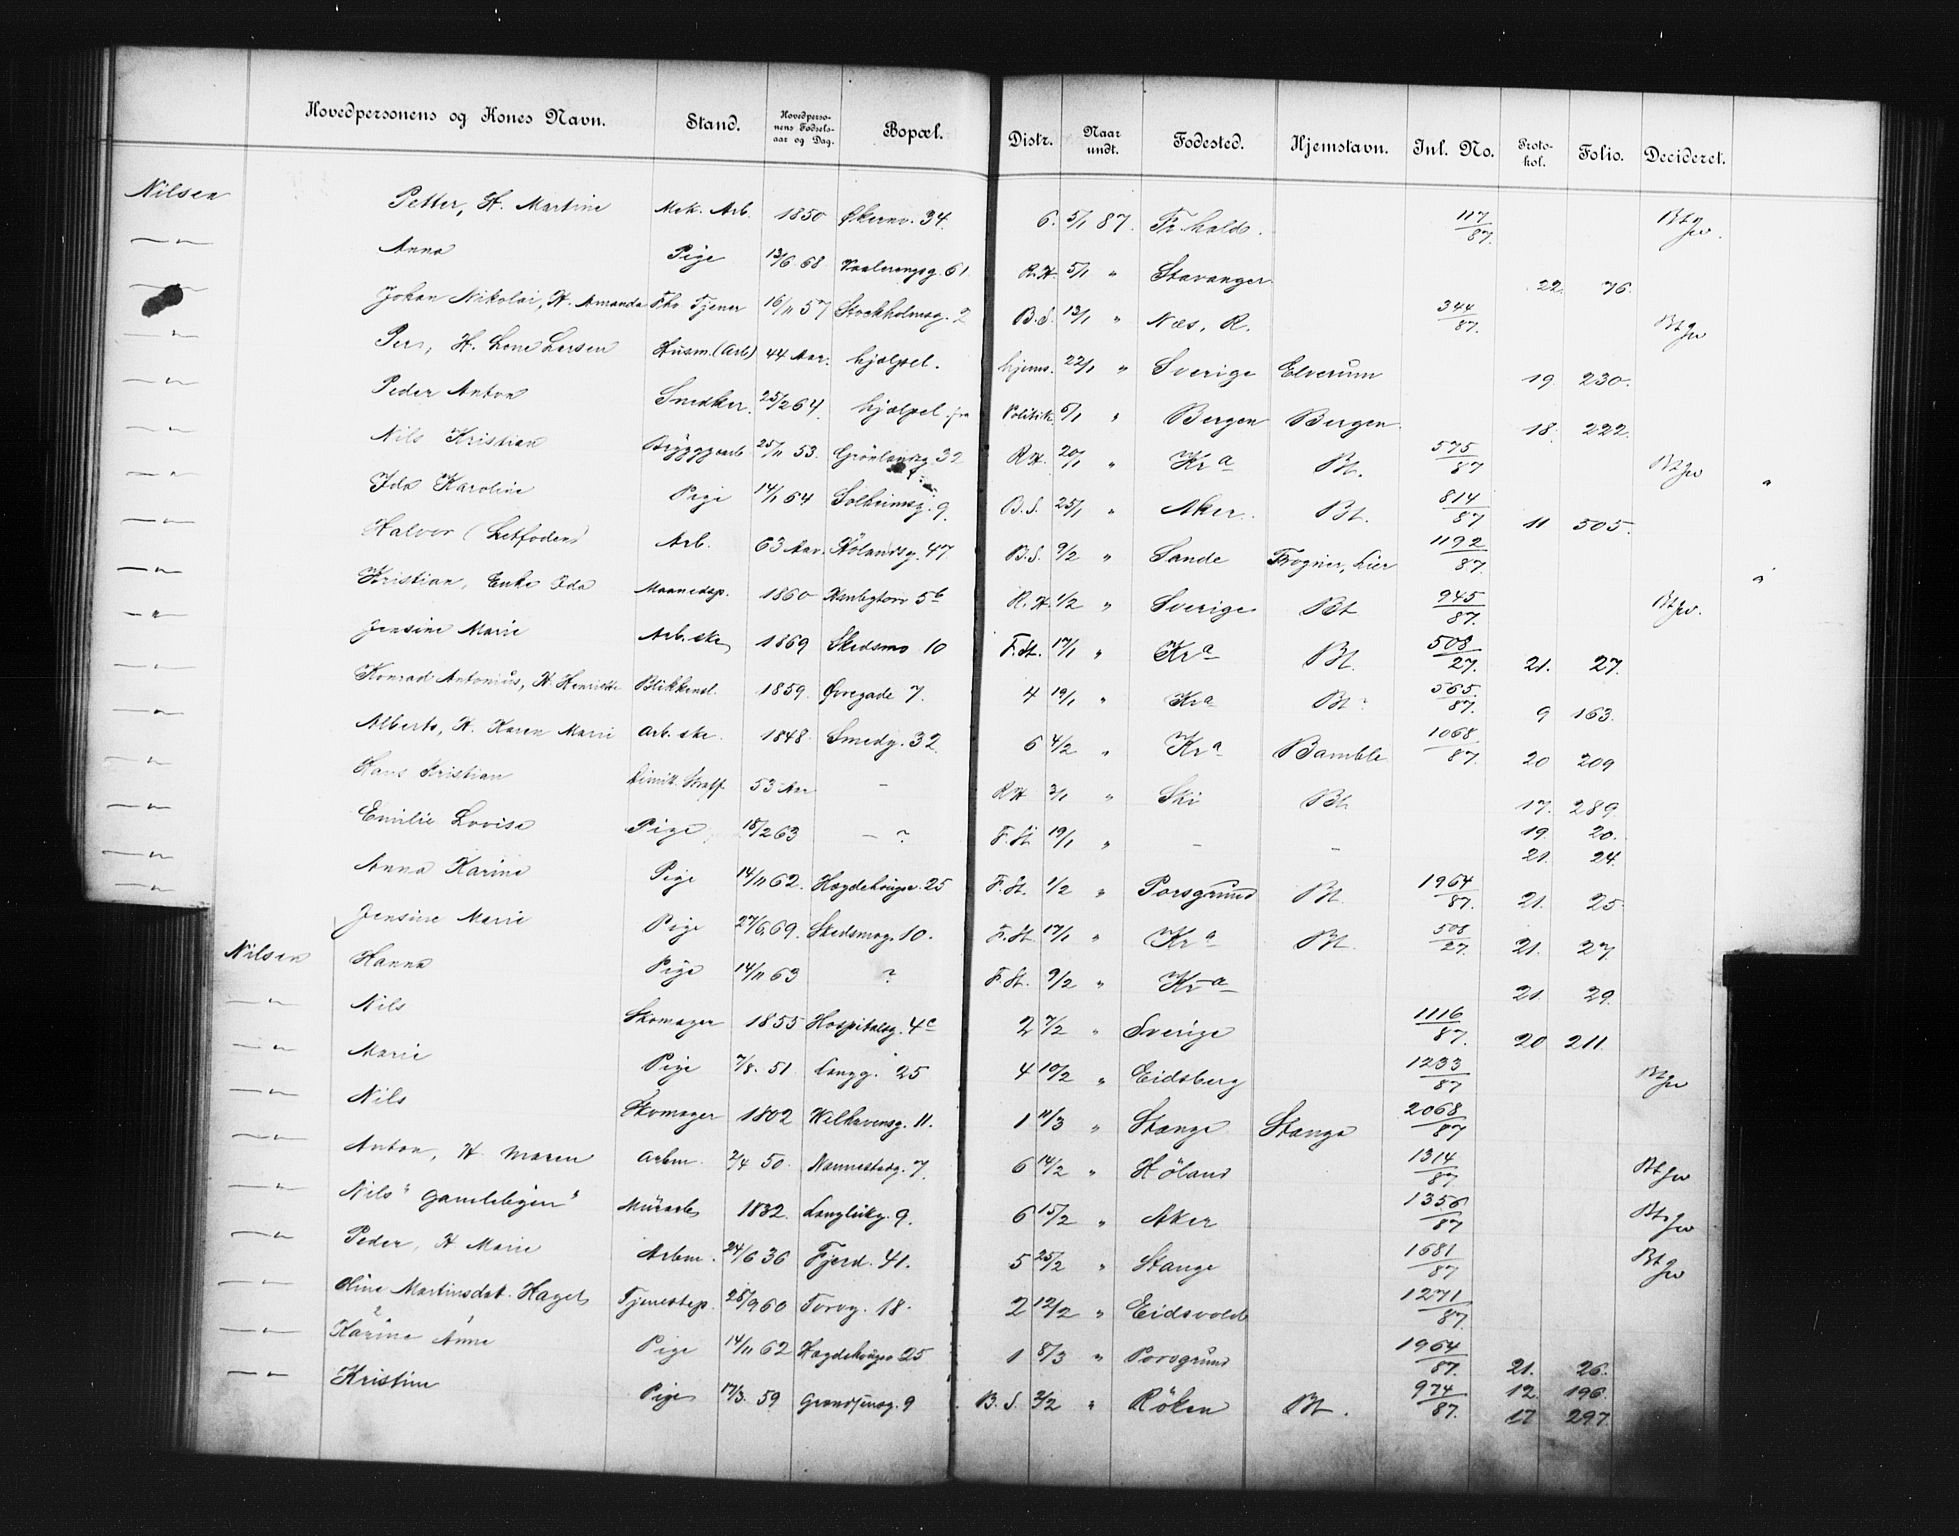 Hovedpersonens og Kones Navn. Stand. Hovedpersonens Fødselsaar og Dag. Bopæl. Distr. Naar undt. Fødested. Hjemstavn. Inl. No. Protokol. Folio. Decideret.
Nilsen Petter, H. Martine Mek. Arb. 1850 Økernv. 34. 6. 5/1 87. Fr.hald. 117/87.
—"— Anna Pige 13/6 68 Vaalerengsg. 61 R.H. 5/1 " Stavanger 22. 76.
—"— Johan Nikolai, H. Amanda Tjener 16/11 57 Stockholmsg. 2 B.S. 13/1 " Næs, R. 344/87.
—"— Per, H. Lene Larsen Husm. (Arb) 44 Aar. hjælpel. hjems. 22/1 " Sverige Elverum 19. 230.
—"— Peder Anton Snedker. 25/2 64. hjælpel. Politik. 5/1 " Bergen Bergen. 18. 222.
—"— Nils Kristian Bryggearb 25/11 53. Grønlandsg 32 R.H. 20/1 " Kra Bt. 575/87
—"— Ida Karoline Pige 14/1 64 Solheimsg. 9. B.S. 25/1 " Aker. Bt. 814/87 11 505.
—"— Halvor Arb. 63 Aar. Hølandsg. 47 B.S. 9/2 " Sande Frogner, Lier 1192/87.
—"— Kristian, Enke Ida Maanedsp. 1860 5b R.H. 1/2 " Sverige Bt 945/87.
—"— Jensine Marie Arb.ske 1869 Skedsmo 10 F.St. 17/1 " Kra Bt. 508/27. 21. 27.
—"— Konrad Antonius, H. Henriette Blikkensl. 1859. Øvregade 7. 4 19/1 " Kra Bt. 565./87. 9 163.
—"— Alberts, H. Karen Marie Arb. ske. 1848. Smedg. 32. 6 4/2 " Kra Bamble. 1068/87. 20 209
—"— Hans Kristian Dimitt. Straff. 53 Aar — R.H 3/1 " Ski Bt. 17. 289.
—"— Emilie Lovise Pige 18/2 63 — ? F.St 19/1 " — — 19. 20.
21. 24.
—"— Anna Karine Pige 14/11 62. Hægdehaugsv. 25 F.St. 1/2 " Porsgrund Bt. 1964/87. 21. 25
—"— Jensine Marie Pige 27/6 69. Skedsmog. 10. F.St. 17/1 " Kra Bt. 508/27. 21. 27.
Nilsen Hanna Pige 14/11 63 ? F.St. 9/2 " Kra 21. 29.
—"— Nils Skomager 1855 Hospitalsg. 4c 2 7/2 " Sverige 1116/87. 20 211.
—"— Marie Pige 7/8. 51 Langg. 25 4 10/2 " Eidsberg 1233/87
—"— Nils Skomager 1802 Welhavensg. 11. 1 11/3 " Stange Stange 2068/87
—"— Anton, H Maren Arbm. 2/4 50. Nannestadg. 7. 6 14/2 " Høland 1314/87
—"— Nils "Gamlebyen" Murarb 1832. Langlikg. 9. 6 15/2 " Aker 1356/87
—"— Peder, H Marie Arbm. 24/6 36 Fjerd. 41. 5 25/2 " Stange 1681/87
—"— Oline Martinsdat. Hagel Tjenestep. 28/9 60 Torvg. 18. 2 12/2 " Eidsvold 1271/87.
—"— Karine Anne Pige 14/11 62 Hægdehaugsv 25 1 8/3 " Porsgrund 1964/87. 21. 26.
—"— Kristine Pige 17/3. 59 Grændseng. 9 B.S. 2/2 " Røken Bt. 974/87. 12. 196.
17 297.